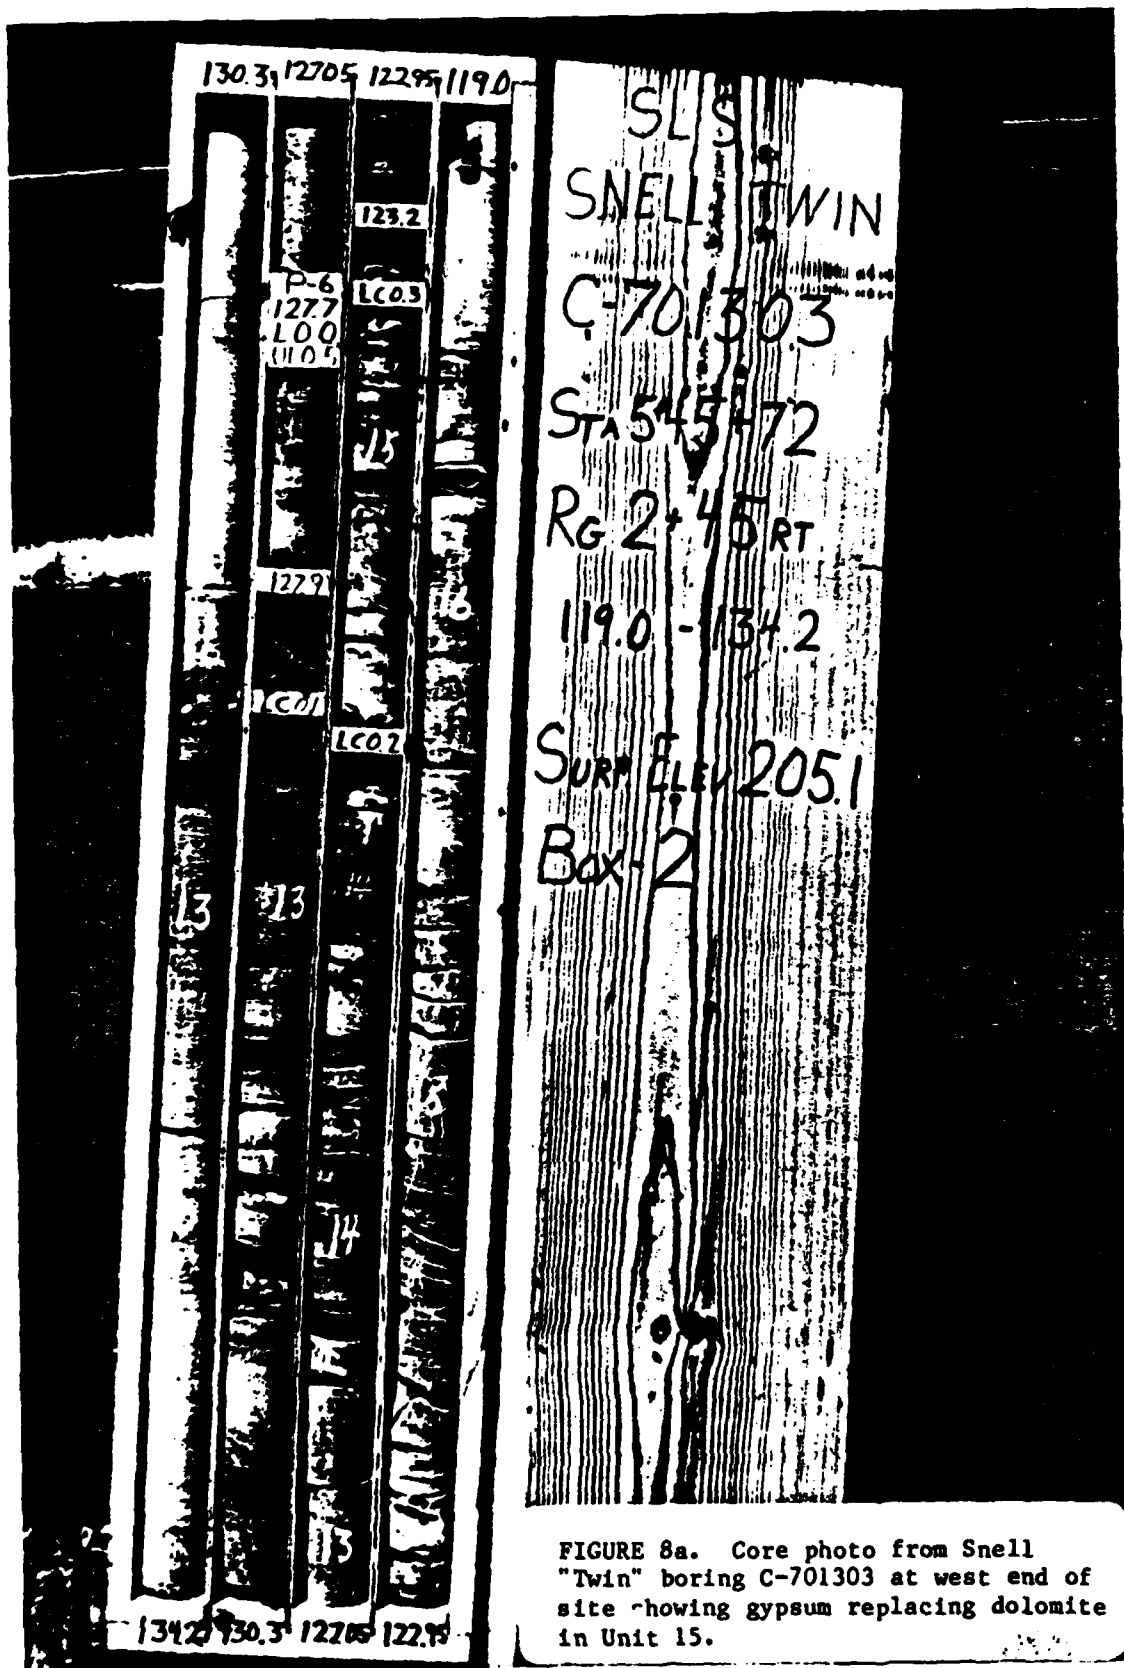 130.3 127.05 122.95 119.0
123.2
P-6
127.7
LC0.3
15
127.9
LC0.1
LC0.2
13
13
14
13
134.2 130.3 127.05 122.95
SLS
SNELL TWIN
C-701303
STA 545+72
RG 2+45 RT
119.0 - 134.2
SURF ELEV 205.1
BOX-2
FIGURE 8a. Core photo from Snell
"Twin" boring C-701303 at west end of
site showing gypsum replacing dolomite
in Unit 15.